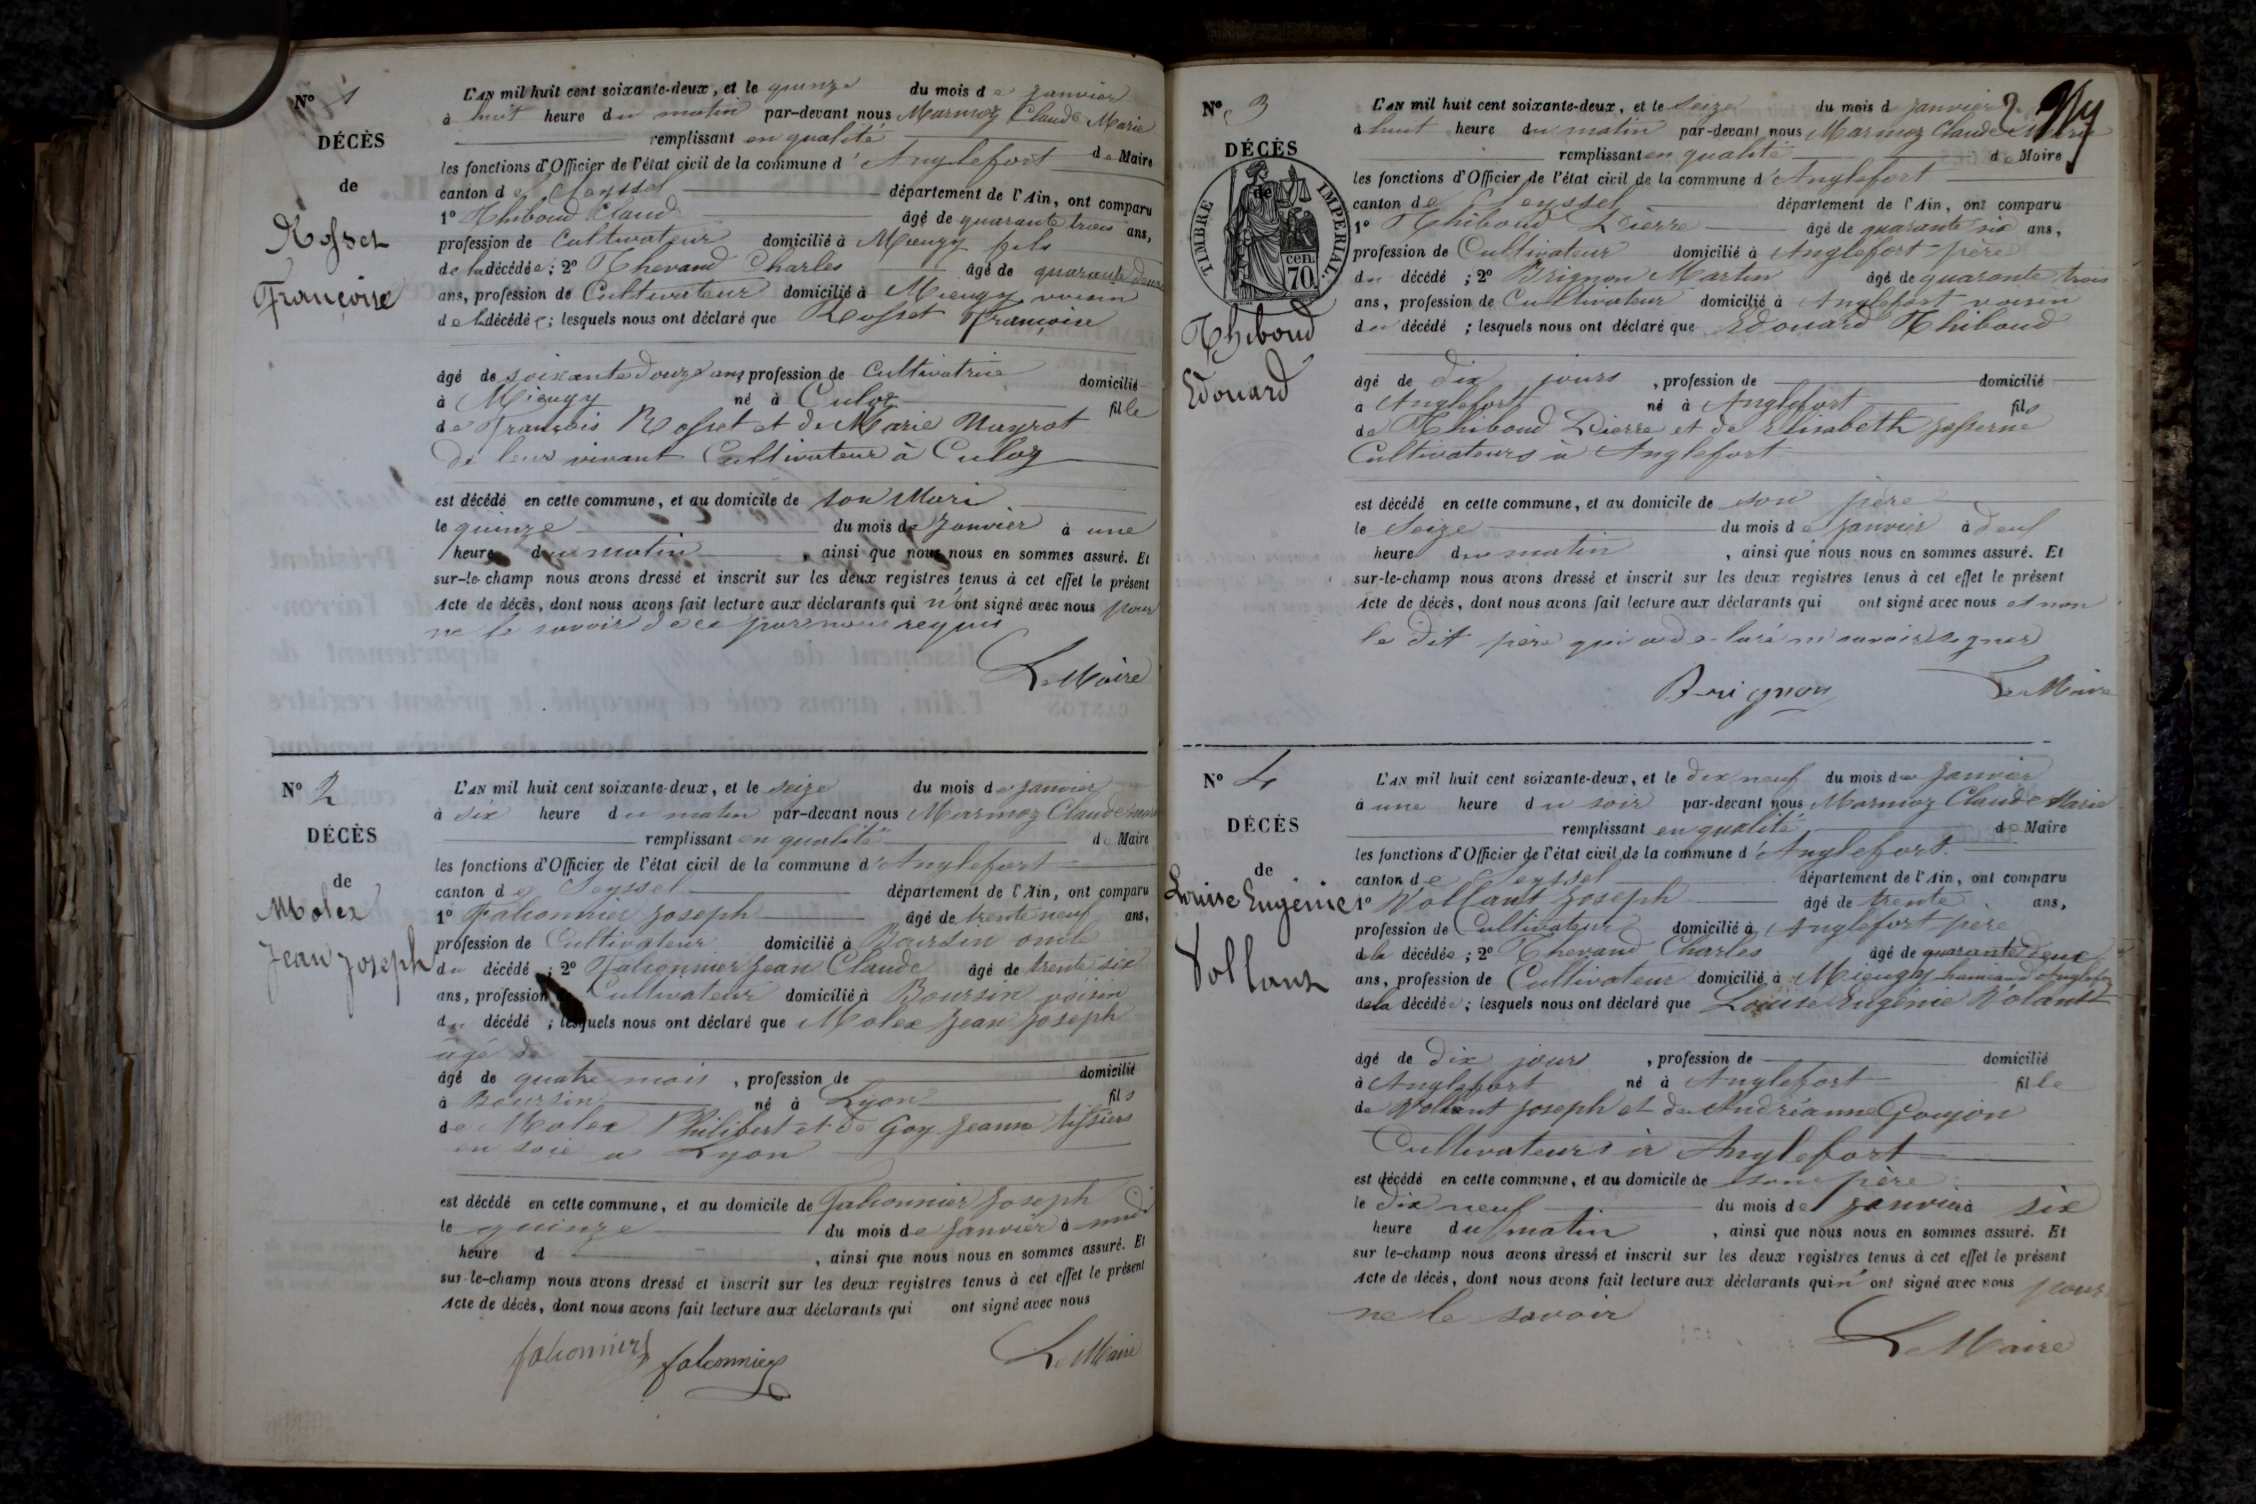 N° 1
DÉCÈS
de
Rosset
Françoise
L'AN mil huit cent soixante-deux, et le quinze du mois de Janvier
à huit heure du matin par-devant nous Marmoz Claude Marie
remplissant en qualité de Maire
les fonctions d'Officier de l'état civil de la commune d'Anglefort
canton de Seyssel département de l'Ain, ont comparu
1° Thiboud Claude âgé de quarante trois ans,
profession de Cultivateur domicilié à Mieugy fils
de la décédée; 2° Thevand Charles âgé de quarante deux
ans, profession de Cultivateur domicilié à Mieugy voisin
de la décédée; lesquels nous ont déclaré que Rosset Françoise
âgé de soixante douze ans profession de Cultivatrice domicilié
à Mieugy né à Culoz fille
de François Rosset et de Marie
de leur vivant Cultivateur à Culoz
est décédé en cette commune, et au domicile de son Mari
le quinze du mois de Janvier à une
heure du matin, ainsi que nous nous en sommes assuré. Et
sur-le-champ nous avons dressé et inscrit sur les deux registres tenus à cet effet le présent
Acte de décès, dont nous avons fait lecture aux déclarants qui n'ont signé avec nous pour
ne le savoir de ce par nous requis
Le Maire
N° 2
DÉCÈS
de
Molex
Jean Joseph
L'AN mil huit cent soixante-deux, et le seize du mois de Janvier
à dix heure du matin par-devant nous Marmoz Claude Marie
remplissant en qualité de Maire
les fonctions d'Officier de l'état civil de la commune d'Anglefort
canton de Seyssel département de l'Ain, ont comparu
1° Falconnier Joseph âgé de trente neuf ans,
profession de Cultivateur domicilié à Boursin oncle
du décédé; 2° Falconnier Jean Claude âgé de trente six
ans, profession de Cultivateur domicilié à Boursin voisin
du décédé; lesquels nous ont déclaré que Molex Jean Joseph
âgé de
âgé de quatre mois, profession de domicilié
à Boursin né à Lyon fils
de Molex Philibert et de Goy Jeanne tissiers
en soie a Lyon
est décédé en cette commune, et au domicile de Falconnier Joseph
le quinze du mois de Janvier à midi
heure d, ainsi que nous nous en sommes assuré. Et
sur-le-champ nous avons dressé et inscrit sur les deux registres tenus à cet effet le présent
Acte de décès, dont nous avons fait lecture aux déclarants qui ont signé avec nous
falconnier falconnier Le Maire
2
N° 3
DÉCÈS
de
TIMBRE IMPÉRIAL.
70 cen.
Thiboud
Edouard
L'AN mil huit cent soixante-deux, et le Seize du mois d Janvier
à huit heure du matin par-devant nous Marmoz Claude Marie
remplissant en qualité de Maire
les fonctions d'Officier de l'état civil de la commune d'Anglefort
canton de Seyssel département de l'Ain, ont comparu
1° Thiboud Pierre âgé de quarante six ans,
profession de Cultivateur domicilié à Anglefort père
du décédé; 2° Brignon Martin âgé de quarante trois
ans, profession de Cultivateur domicilié à Anglefort voisin
du décédé; lesquels nous ont déclaré que Edouard Thiboud
âgé de dix jours, profession de domicilié
à Anglefort né à Anglefort fils
de Thiboud Pierre et de Elisabeth
Cultivateurs à Anglefort
est décédé en cette commune, et au domicile de son père
le Seize du mois de Janvier à deux
heure du matin, ainsi que nous nous en sommes assuré. Et
sur-le-champ nous avons dressé et inscrit sur les deux registres tenus à cet effet le présent
Acte de décès, dont nous avons fait lecture aux déclarants qui ont signé avec nous et non
le dit père qui a déclaré ne savoir signer
Brignon Le Maire
N° 4
DÉCÈS
de
Louise Eugénie
Vollant
L'AN mil huit cent soixante-deux, et le dix neuf du mois de Janvier
à une heure du soir par-devant nous Marmoz Claude Marie
remplissant en qualité de Maire
les fonctions d'Officier de l'état civil de la commune d'Anglefort
canton de Seyssel département de l'Ain, ont comparu
1° Vollant Joseph âgé de trente ans,
profession de Cultivateur domicilié à Anglefort père
de la décédée; 2° Thevand Charles âgé de quarante deux
ans, profession de Cultivateur domicilié à Mieugy hameau d'Anglefort
de la décédée; lesquels nous ont déclaré que Louise Eugénie Volant
âgé de dix jours, profession de domicilié
à Anglefort né à Anglefort fille
de Vollant Joseph et de Andréanne Goujon
Cultivateurs à Anglefort
est décédé en cette commune, et au domicile de son père
le dix neuf du mois de Janvier à six
heure du matin, ainsi que nous nous en sommes assuré. Et
sur le-champ nous avons dressé et inscrit sur les deux registres tenus à cet effet le présent
Acte de décès, dont nous avons fait lecture aux déclarants qui n'ont signé avec nous pour
ne le savoir
Le Maire